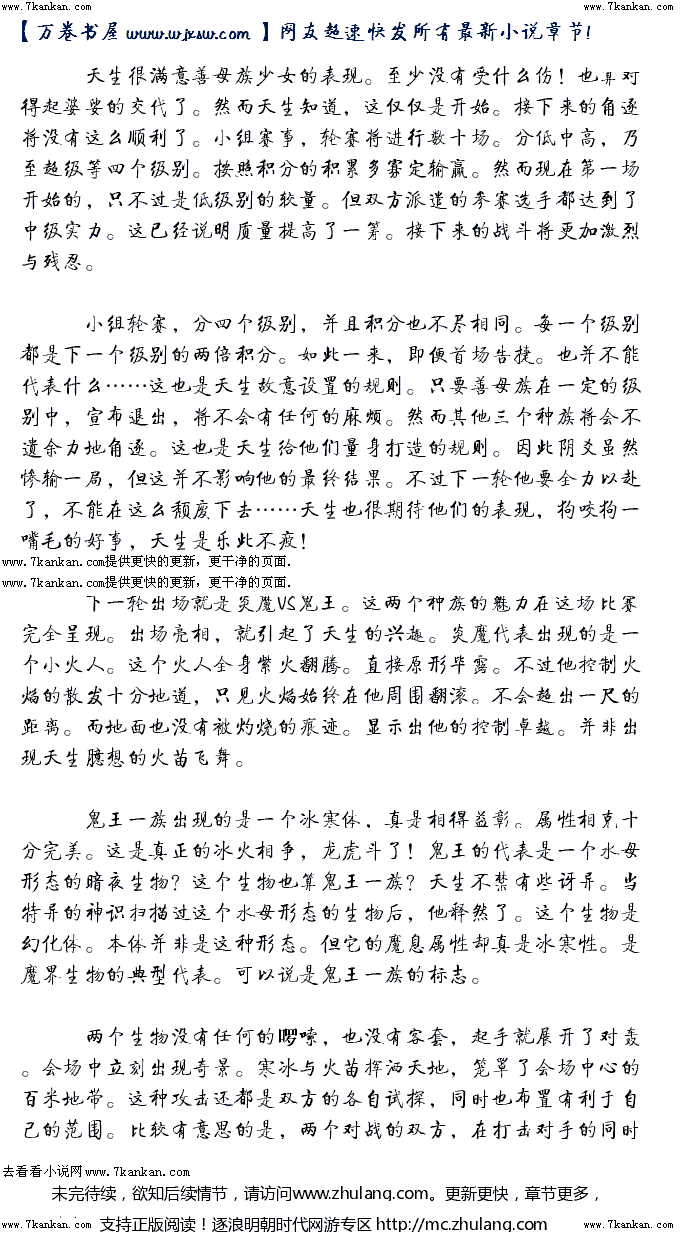 www.7kankan.com www.7kankan.com www.7kankan.com www.7kankan.com
【万卷书屋 www.wjxsw.com 】网友超速快发所有最新小说章节!
天生很满意善母族少女的表现。至少没有受什么伤！也算对
得起婆娑的交代了。然而天生知道，这仅仅是开始。接下来的角逐
将没有这么顺利了。小组赛事，轮赛将进行数十场。分低中高，乃
至超级等四个级别。按照积分的积累多寡定输赢。然而现在第一场
开始的，只不过是低级别的较量。但双方派遣的参赛选手都达到了
中级实力。这已经说明质量提高了一筹。接下来的战斗将更加激烈
与残忍。
小组轮赛，分四个级别，并且积分也不尽相同。每一个级别
都是下一个级别的两倍积分。如此一来，即便首场告捷。也并不能
代表什么……这也是天生故意设置的规则。只要善母族在一定的级
别中，宣布退出，将不会有任何的麻烦。然而其他三个种族将会不
遗余力地角逐。这也是天生给他们量身打造的规则。因此阴爻虽然
惨输一局，但这并不影响他的最终结果。不过下一轮他要全力以赴
了，不能在这么颓废下去……天生也很期待他们的表现，狗咬狗一
嘴毛的好事，天生是乐此不疲！
www.7kankan.com提供更快的更新，更干净的页面.
www.7kankan.com提供更快的更新，更干净的页面.
下一轮出场就是炎魔VS鬼王。这两个种族的魅力在这场比赛
完全呈现。出场亮相，就引起了天生的兴趣。炎魔代表出现的是一
个小火人。这个火人全身紫火翻腾。直接原形毕露。不过他控制火
焰的散发十分地道，只见火焰始终在他周围翻滚。不会超出一尺的
距离。而地面也没有被灼烧的痕迹。显示出他的控制卓越。并非出
现天生臆想的火苗飞舞。
鬼王一族出现的是一个冰寒体，真是相得益彰。属性相克十
分完美。这是真正的冰火相争，龙虎斗了！鬼王的代表是一个水母
形态的暗夜生物？这个生物也算鬼王一族？天生不禁有些讶异。当
特异的神识扫描过这个水母形态的生物后，他释然了。这个生物是
幻化体。本体并非是这种形态。但它的魔息属性却真是冰寒性。是
魔界生物的典型代表。可以说是鬼王一族的标志。
两个生物没有任何的啰嗦，也没有客套，起手就展开了对轰
。会场中立刻出现奇景。寒冰与火苗挥洒天地，笼罩了会场中心的
百米地带。这种攻击还都是双方的各自试探，同时也布置有利于自
己的范围。比较有意思的是，两个对战的双方，在打击对手的同时
去看看小说网www.7kankan.com
未完待续，欲知后续情节，请访问www.zhulang.com。更新更快，章节更多，
支持正版阅读！逐浪明朝时代网游专区 http://mc.zhulang.com
www.7kankan.com www.7kankan.com